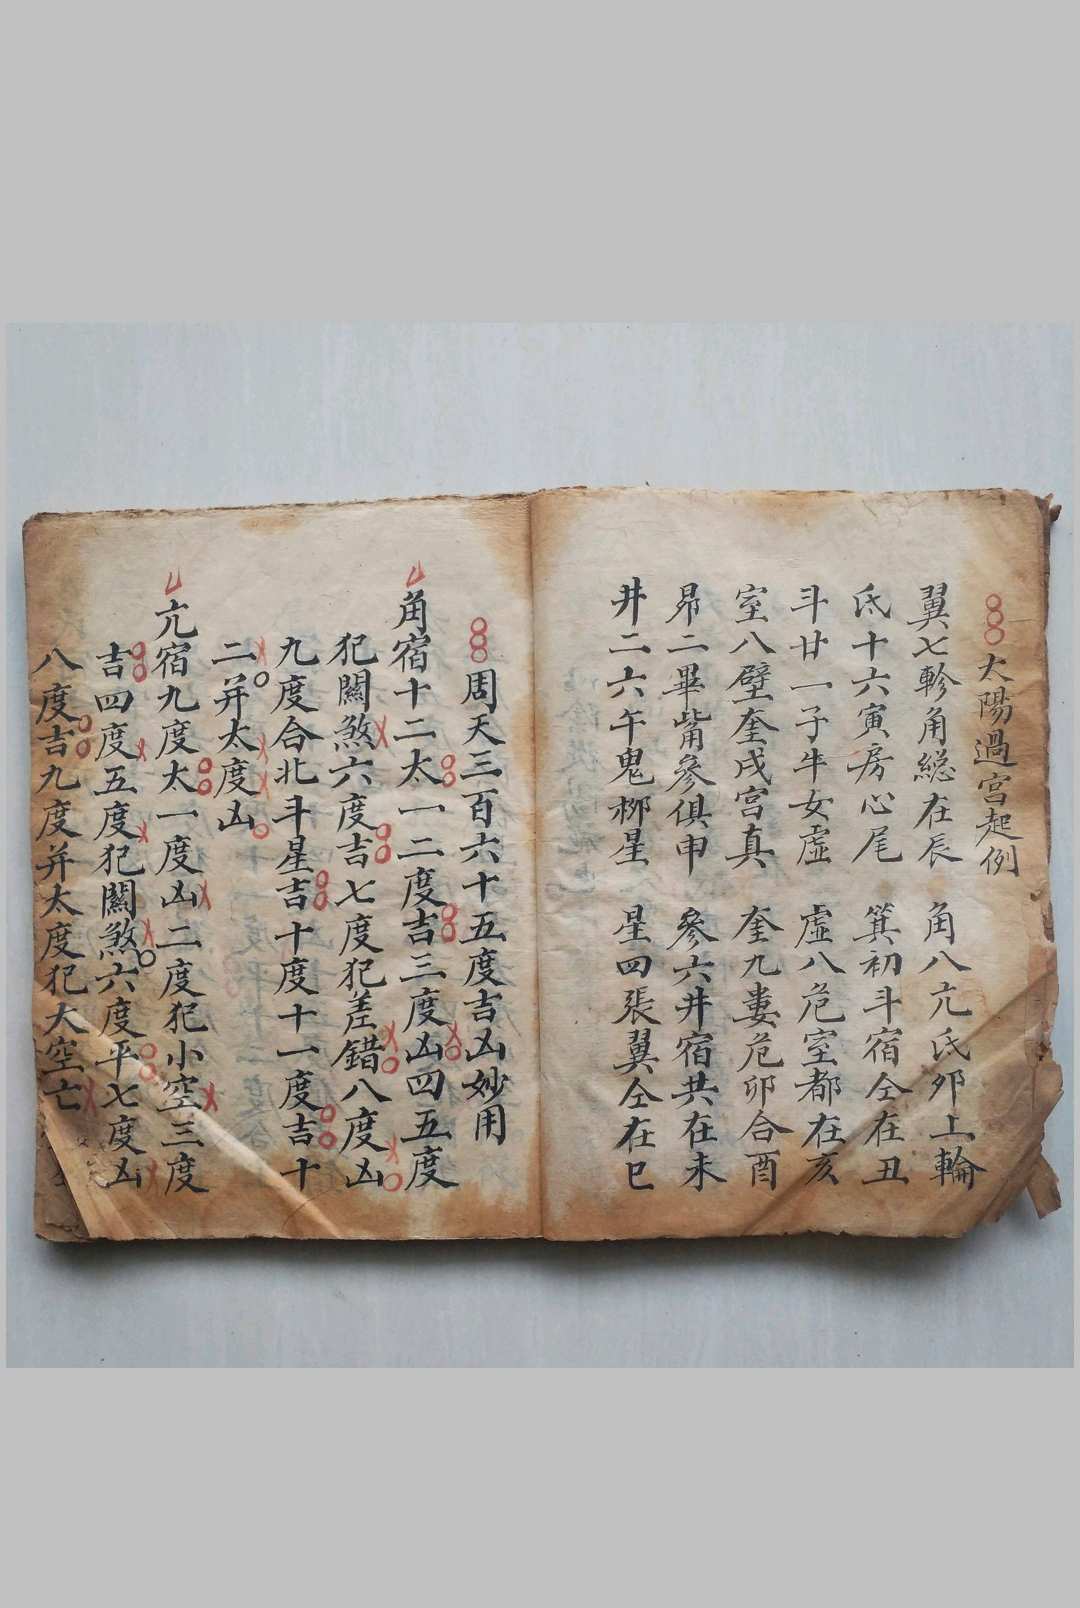 太陽過宮起例
翼七軫角總在辰 角八亢氐夘上輪
氐十六寅房心尾 箕初斗宿仝在丑
斗廿一子牛女虛 虛八危室都在亥
室八壁奎戌宮真 奎九婁危卯合酉
昴二畢觜參俱申 參六井宿共在未
井二六午鬼柳星 星四張翼仝在巳
周天三百六十五度吉凶妙用
角宿十二太一二度吉三度凶四五度
犯關煞六度吉七度犯差錯八度凶
九度合北斗星吉十度十一度吉十
二并太度凶
亢宿九度太一度凶二度犯小空三度
吉四度五度犯關煞六度平七度凶
八度吉九度并太度犯大空亡